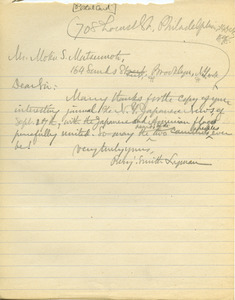 Postal Card
708 Locust St., Philadelphia,
Mr. Moko S. Matsumoto,
164 Sands Street, Brooklyn, N.York
Dear Sir:
Many thanks for the copy of your
interesting journal the N.Y. Japanese News of
Sept. 24th, with the Japanese and American flags
gracefully united. So may the two countries ever
be!
Very truly yours,
Benj. Smith Lyman